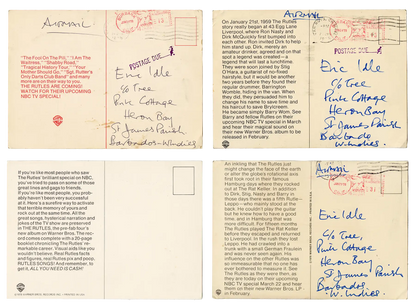 AIRMAIL
"The Fool On The Pill," "I Am The
Waitress," "Shabby Road,"
"Tragical History Tour," "Your
Mother Should Go," "Sgt. Rutter's
Only Darts Club Band" and many
more are on their way to you.
THE RUTLES ARE COMING!
WATCH FOR THEIR UPCOMING
NBC TV SPECIAL!
POSTAGE DUE
Eric Idle
c/o Tree
Pink Cottage
Heron Bay
St James Parish
Barbados - W. Indies.
AIRMAIL
On January 21st, 1959 The Rutles'
story really began at 43 Egg Lane
Liverpool, where Ron Nasty and
Dirk McQuickly first bumped into
each other. Ron invited Dirk to help
him stand up. Dirk, merely an
amateur drinker, agreed and on that
spot a legend was created - a
legend that will last a lunchtime.
They were soon joined by Stig
O'Hara, a guitarist of no-fixed
hairstyle, but it would be another
two years before they found their
regular drummer, Barrington
Womble, hiding in the van. When
they did, they persuaded him to
change his name to save time and
his haircut to save Brylcreem.
He became simply Barry Wom. See
Barry and fellow Rutles on their
upcoming NBC TV special in March
and hear their magical sound on
their new Warner Bros. album to be
released in February.
POSTAGE DUE
Eric Idle
c/o Tree
Pink Cottage
Heron Bay
St James Parish
Barbados
W. Indies.
If you're like most people who saw
The Rutles' brilliant special on NBC,
you've tried to pass on some of those
great lines and gags to friends.
If you're like most people, you prob-
ably haven't been very successful
at it. Here's a surefire way to activate
that terrible memory of yours and
rock out at the same time. All the
great songs, hysterical narration and
jokes of the TV show are preserved
in THE RUTLES, the pre-fab four's
new album on Warner Bros. The rec-
ord comes complete with a 20-page
booklet chronicling The Rutles' re-
markable career. Visual aids like you
wouldn't believe. Real Rutles facts
and figures, real Rutles pix and peeps,
RUTLES SONGS! And remember, to
get it, ALL YOU NEED IS CASH!
An inkling that The Rutles just
might change the face of the earth
or alter the globe's rotational axis
first took root in their famous
Hamburg days where they rocked
out at The Rat Keller. In addition
to Dirk, Stig, Nasty and Barry in
those days there was a fifth Rutle—
Leppo—who mainly stood at the
back. He couldn't play the guitar
but he knew how to have a good
time, and in Hamburg that was
more difficult. For fifteen months
The Rutles played The Rat Keller
before they escaped and returned
to Liverpool. In the rush they lost
Leppo. He had crawled into a
trunk with a small German Fraulein
and was never seen again. His
influence on the other Rutles was
so immeasurable that no one has
ever bothered to measure it. See
The Rutles as they were then, as
they are today on their upcoming
NBC TV special March 22 and hear
them on their new Warner Bros. LP
in February.
Airmail
Eric Idle
c/o Tree,
Pink Cottage
Heron Bay
St James Parish
Barbados
W. Indies.